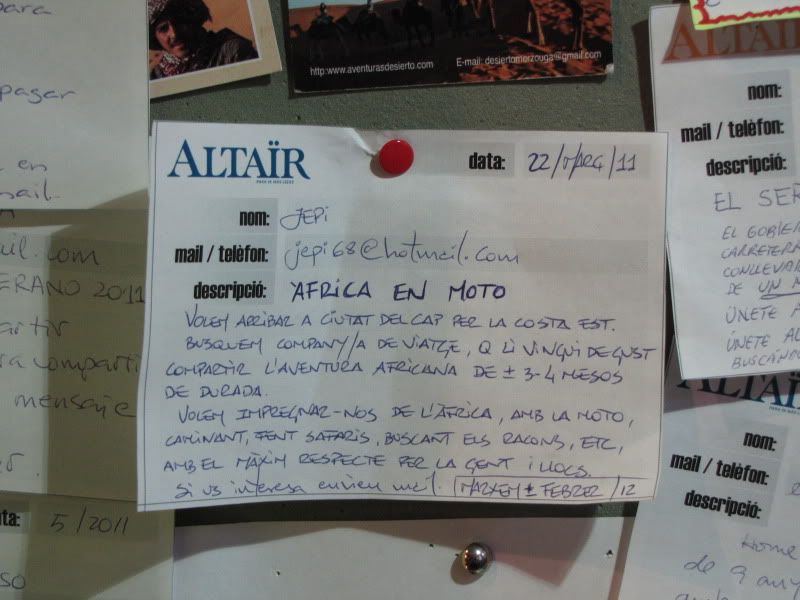 para
pagar
en
mail.
http:www.aventurasdesierto.com
E-mail: desiertomerzouga@gmail.com
ALTAÏR
data: 22/MARÇ/11
nom: JEPI
mail / telèfon: jepi68@hotmail.com
descripció: ÀFRICA EN MOTO
VOLEM ARRIBAR A CIUTAT DEL CAP PER LA COSTA EST.
BUSQUEM COMPANY/A DE VIATGE, Q LI VINGUI DE GUST
COMPARTIR L'AVENTURA AFRICANA DE ± 3-4 MESOS
DE DURADA.
VOLEM IMPREGNAR-NOS DE L'ÀFRICA, AMB LA MOTO,
CAMINANT, FENT SAFARIS, BUSCANT ELS RACONS, ETC,
AMB EL MÀXIM RESPECTE PER LA GENT I LLOCS.
Si us interesa envieu mail. MARXEM ± FEBRER /12
.com
VERANO 2011
compartir
mensaje
5/2011
ALTAÏR
nom:
mail / telèfon:
descripció:
EL SER
EL GOBIE
CARRETERA
CONLLEVA
DE UN M
ÚNETE A
ÚNETE AL
BUSCANDO
ALTAÏR
nom:
mail / telèfon:
descripció:
Home
de 9 any
amb